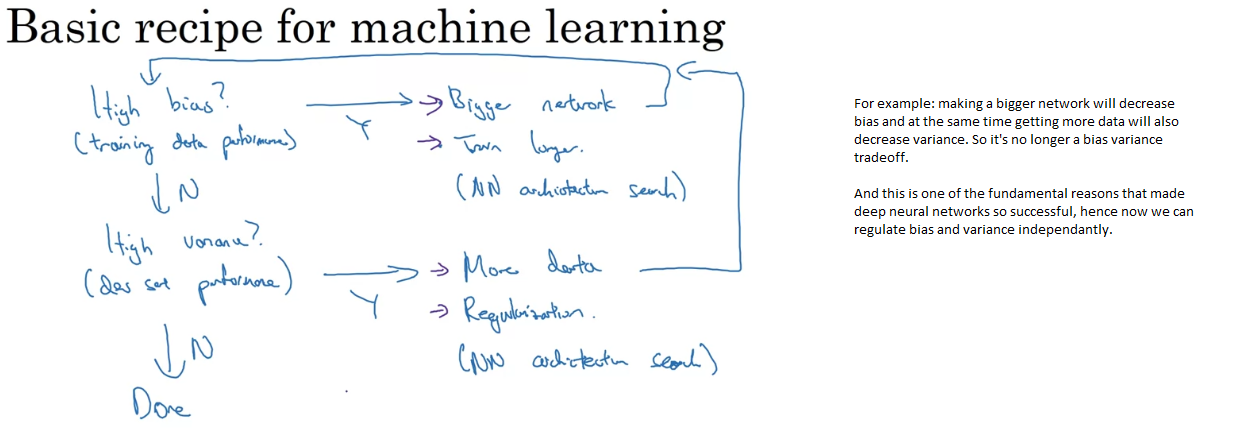 Basic recipe for machine learning
High bias?
(training data performance)
Y
Bigger network
Train longer.
(NN architecture search)
N
High variance?
(dev set performance)
Y
More data
Regularization.
(NN architecture search)
N
Done
For example: making a bigger network will decrease
bias and at the same time getting more data will also
decrease variance. So it's no longer a bias variance
tradeoff.
And this is one of the fundamental reasons that made
deep neural networks so successful, hence now we can
regulate bias and variance independantly.